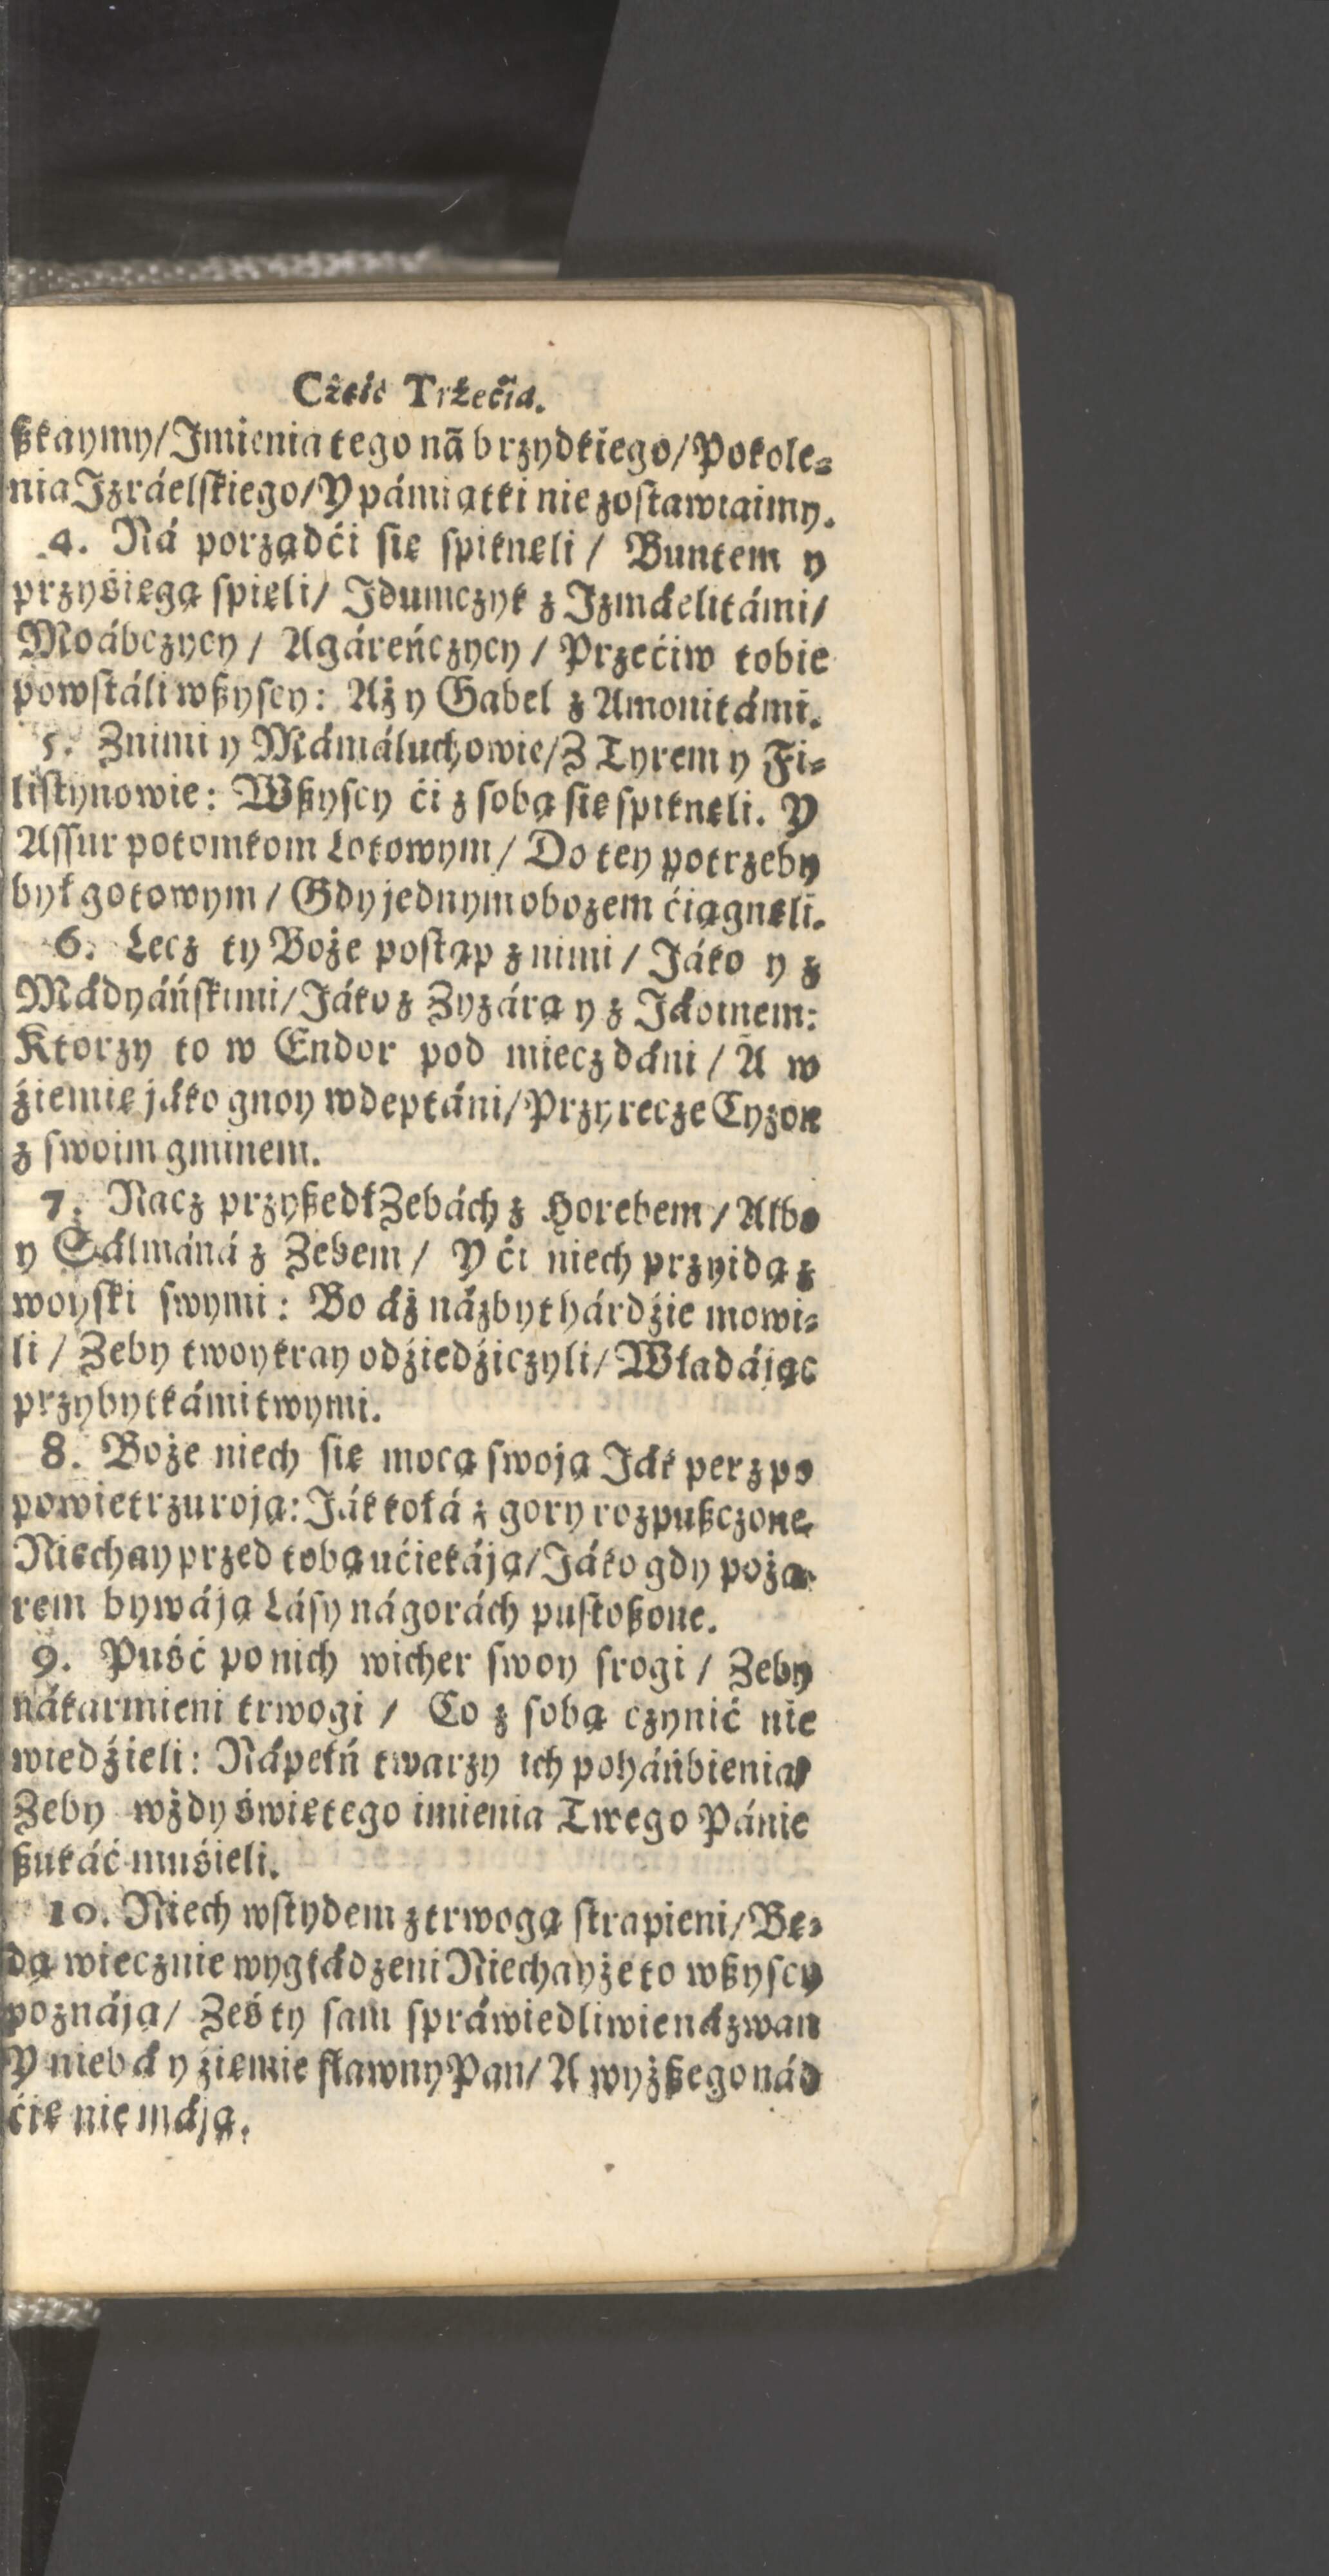 Część Trżecia.
ßkaymy/Jmienia tego nã brzydkiego/Pokole⸗
nia Jzráelskiego/Y pámiątki nie zostawiaimy.
4. Ná porządći się spiknęli / Buntem y
przyśięgą spięli/ Jdumczyk z Jzmáelitámi/
Moábczycy / Agáreńczycy / Przećiw tobie
powstáli wßyscy: Aż y Gabel z Amonitámi.
5. Znimi y Mámáluchowie/Z Tyrem y Fi⸗
listynowie: Wßyscy ći z sobą się spiknęli. Y
Assur potomkom Lotowym/ Do tey potrzeby
był gotowym / Gdy jednym obozem ćiągnęli.
6. Lecz ty Boże postąp z nimi / Jáko y z
Mádyáńskimi/Jáko z Zyzárą y z Jáominem:
Ktorzy to w Endor pod miecz dáni / A w
źiemię jáko gnoy wdeptáni/Przy rzecze Cyzon
z swoim gminem.
7. Nacz przyßedł Zebách z Horebem / Albo
y Sálmáná z Zebem / Y ći niech przyidą z
woyski swymi: Bo áż názbyt hárdźie mowi⸗
li / Zeby twoy kray odźiedźiczyli/ Władájąc
przybytkámi twymi.
8. Boże niech się mocą swoją Ják perz po
powietrzu roją: Ják kołá z gory rozpußczone.
Niechay przed tobą ućiekáją/Jáko gdy poża⸗
rem bywáją Lásy ná gorách pustoßone.
9. Puść po nich wicher swoy srogi / Zeby
nákarmieni trwogi / Co z sobą czynić nie
wiedźieli: Nápełń twarzy ich poháńbienia/
Zeby wżdy świętego imienia Twego Pánie
ßukáć muśieli.
10. Niech wstydem z trwogą strapieni/Bę⸗
dą wiecznie wygłádzeni Niechayże to wßyscy
poznáją/ Ześ ty sam spráwiedliwie názwan
Y niebá y źiemie sławny Pan/ A wyżßego nád
ćię nie máją.